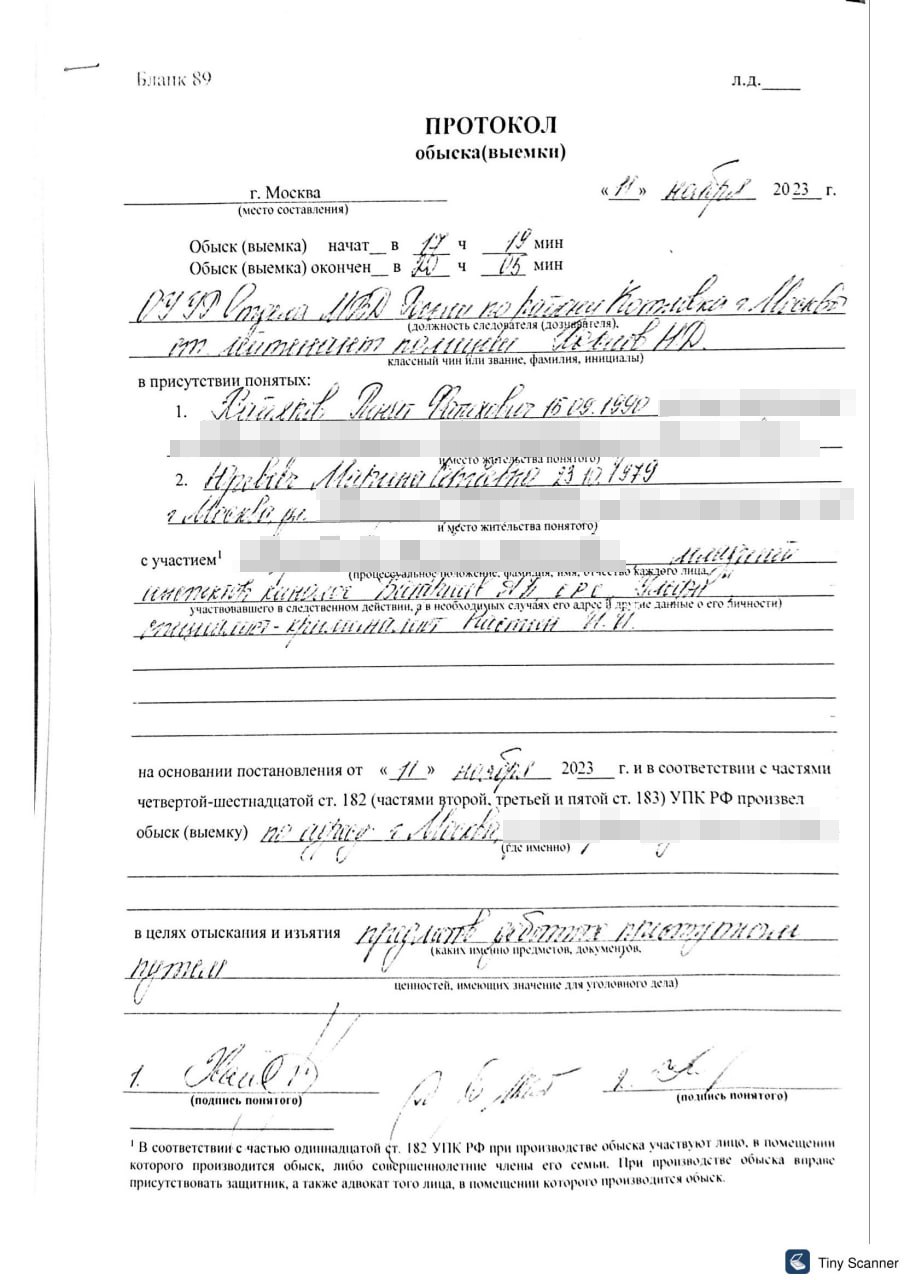 Бланк 89
л.д.____
ПРОТОКОЛ
обыска(выемки)
г. Москва
« 11 » ноября 2023 г.
(место составления)
Обыск (выемка) начат__ в 17 ч 19 мин
Обыск (выемка) окончен__ в 20 ч 05 мин
ОУУР Отдела МВД России по району Котловка г. Москвы
(должность следователя (дознавателя),
ст лейтенант полиции Н.Д.
классный чин или звание, фамилия, инициалы)
в присутствии понятых:
1. 15 09. 1990
и место жительства понятого)
2. Марина Сергеевна 23 10. 1979
г Москва, ул.
и место жительства понятого)
с участием1 младший
(процессуальное положение, фамилия, имя, отчество каждого лица,
инспектор кинолог
участвовавшего в следственном действии, а в необходимых случаях его адрес и другие данные о его личности)
специалист-криминалист
на основании постановления от « 11 » ноября 2023 г. и в соответствии с частями
четвертой-шестнадцатой ст. 182 (частями второй, третьей и пятой ст. 183) УПК РФ произвел
обыск (выемку) по адресу г Москва,
(где именно)
в целях отыскания и изъятия предметов добытых преступным
(каких именно предметов, документов,
путем
ценностей, имеющих значение для уголовного дела)
1.
2.
(подпись понятого)
(подпись понятого)
1 В соответствии с частью одиннадцатой ст. 182 УПК РФ при производстве обыска участвуют лицо, в помещении
которого производится обыск, либо совершеннолетние члены его семьи. При производстве обыска вправе
присутствовать защитник, а также адвокат того лица, в помещении которого производится обыск.
Tiny Scanner